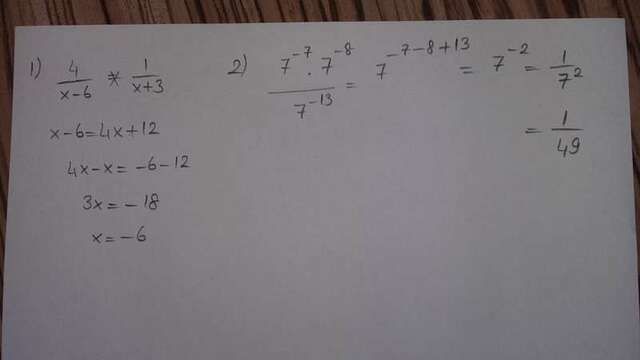 1) 4/(x-6) * 1/(x+3)
x-6=4x+12
4x-x=-6-12
3x=-18
x=-6
2) (7^-7 · 7^-8)/(7^-13) = 7^(-7-8+13) = 7^-2 = 1/7^2
= 1/49